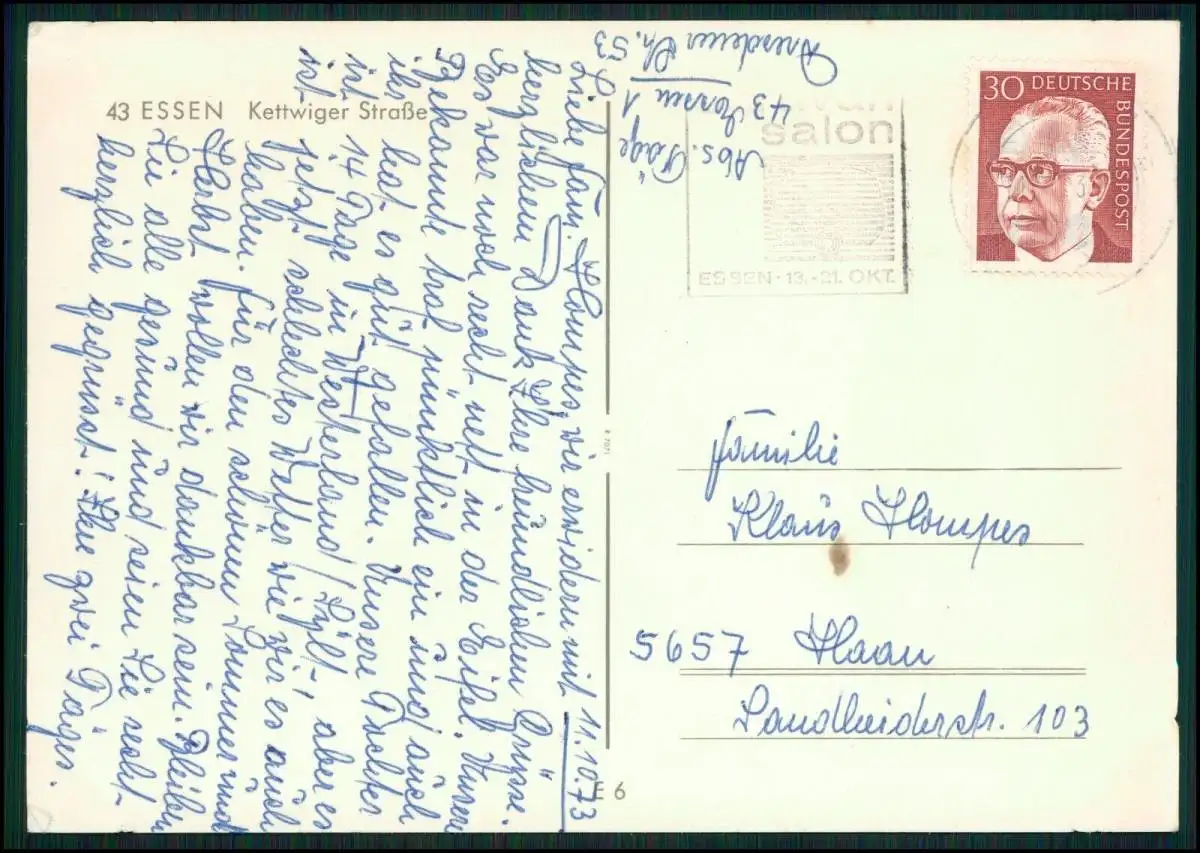 43 ESSEN Kettwiger Straße
11.10.73
Liebe Fam. Hompes, wir erwidern mit
herzlichem Dank Ihre freundlichen Grüsse.
Es war noch recht nett in der Eifel. Unsere
Bekannte traf pünktlich ein und auch
ihr hat es gut gefallen. Unsere Tochter
ist 14 Tage in Westerland/Sylt, aber es
ist jetzt schlechtes Wetter wie wir es auch
haben. Für den schönen Sommer und
Herbst wollen wir dankbar sein. Bleiben
Sie alle gesund und seien Sie recht
herzlich gegrüsst! Ihre zwei
E 6
Abs.
43 Essen 1
Dresdener Str. 53
salon
ESSEN · 13.-21. OKT.
30 DEUTSCHE
BUNDESPOST
Familie
Klaus Hompes
5657 Haan
Landheiderstr. 103